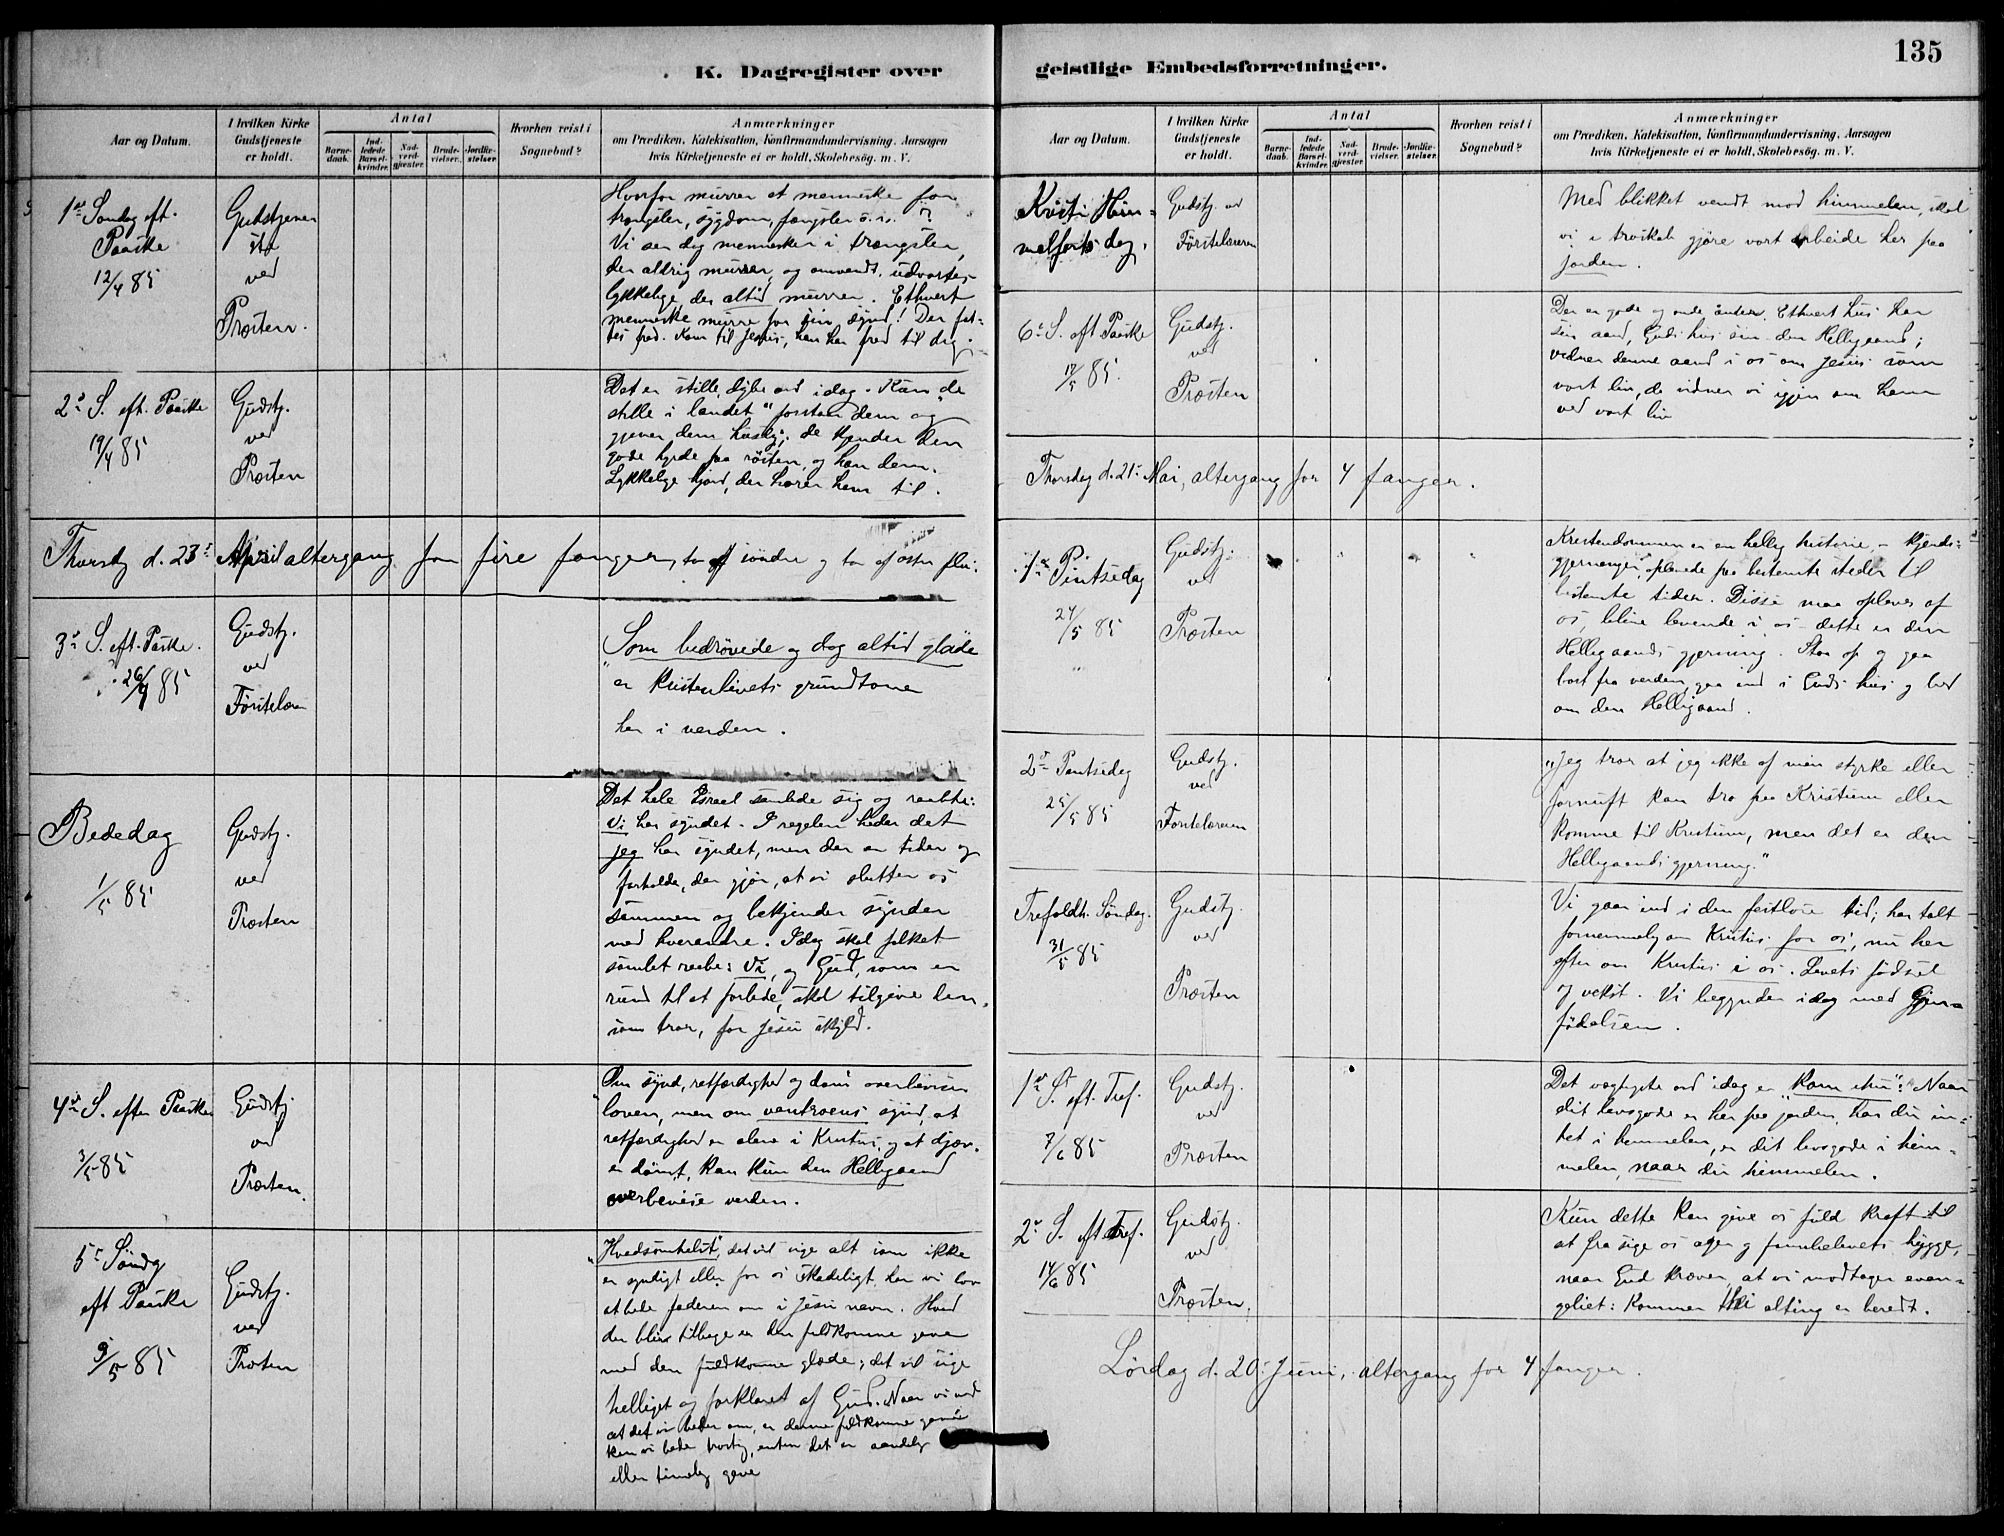 135
K. Dagregister over
geistlige Embedsforretninger.
Aar og Datum.
I hvilken Kirke
Gudstjeneste
er holdt.
Antal
Barne-
daab.
Ind-
ledede
Barsel-
kvinder.
Nad-
verd-
gjester.
Brude-
vielser.
Jordfæ-
stelser.
Hvorhen reist i
Sognebud?
Anmærkninger
om Prædiken, Katekisation, Konfirmandundervisning, Aarsagen
hvis Kirketjeneste ei er holdt, Skolebesøg, m. V.
1ste Søndag eft.
Paaske
12/4 85
ved
Præsten.
Hvorfor murrer et menneske
trængsler, sygdom, fængsler o.s.v.?
Vi ser dog mennesker i trængsler,
der aldrig murrer, og omvendt, udvortes
lykkelige der altid murrer. Ethvert
menneske murre for sin synd! Der fat-
tes fred. Kom til Jesus, han har fred til dig.
2den S. eft. Paaske
19/4 85
Gudstj.
ved
Præsten
Det er stille, dybe ord idag. Kun "de
stille i landet" forstaar dem og
gjever dem husly; de kjender den
gode hyrde paa røsten, og han dem.
Lykkelige hjord, der hører ham til.
Thorsdg d. 23de April altergang for fire fanger, to af søndre og to af østre fløi.
3die S. eft. Paaske.
26/4 85
Gudstj.
ved
Førstelæreren
"Som bedrøvede og dog altid glade
er Kristenlivets grundtone
her i verden.
Bededag
1/5 85
Gudstj.
ved
Præsten
Det hele Israel samlede sig og raabte:
Vi har syndet. I regelen heder det
jeg har syndet, men der er tider og
forholde, der gjør, at vi slutter os
sammen og bekjender synden
med hverandre. Idag skal folket
samlet raabe: Vi, og Gud, som er
rund til at forlade, skal tilgive den,
som tror, for Jesu skyld.
4de S. efter Paaske
3/5 85
Gudstj
ved
Præsten.
Om synd, retfærdighed og dom overbeviser
loven, men om vantroens synd, at
retfærdighed er alene i Kristus, og at djæv.
er dømt, kan kun den Helligaand
overbevise verden.
5te Søndg
eft Paaske
9/5 85
Gudstj.
ved
Præsten
"Hvadsomhelst", det vil sige alt som ikke
er syndigt eller for os skadeligt, har vi lov
at bede faderen om i Jesu navn. Hvad
der bliver tilbage er den fuldkomne gave
med den fuldkomne glæde; det vil sige
helliget og forklaret af Gud. Naar vi ved
at det vi beder om, er denne fuldkomne gave
kan vi bede trøstig, enten det er aandelig
eller timelig gave
Aar og Datum.
I hvilken Kirke
Gudstjeneste
er holdt.
Antal
Barne-
daab.
Ind-
ledede
Barsel-
kvinder.
Nad-
verd-
gjester.
Brude-
vielser.
Jordfæ-
stelser.
Hvorhen reist i
Sognebud?
Anmærkninger
om Prædiken, Katekisation, Konfirmandundervisning, Aarsagen
hvis Kirketjeneste ei er holdt, Skolebesøg, m. V.
Kristi Him-
melfartsdag.
Gudstj. ved
Førstelæreren
Med blikket vendt mod himmelen, skal
vi i troskab gjøre vort arbeide her paa
jorden.
6te S. eft Paaske
17/5 85.
Gudstj.
ved
Præsten
Der er gode og onde ånder. Ethvert hus har
sin aand, Guds hus sin den Helligaand;
vidner denne aand i os om Jesus som
vort liv, da vidner vi igjen om ham
ved vort liv
Thorsdag d. 21de Mai, altergang for 4 fanger.
1ste Pintsedag
24/5 85
Gudstj.
ved
Præsten
Kristendommen er en hellig historie,
gjerninger, oplevede paa bestemte steder til
bestemte tider. Disse maa opleves af
os, blive levende i os – dette er den
Helligaands gjerning. Staa op og gaa
bort fra verden, gaa ind i Guds hus og bed
om den Helligaand.
2den Pintsedag
25/5 85
Gudstj.
ved
Førstelæreren
"Jeg tror at jeg ikke af min styrke eller
fornuft kan tro paa Kristum eller
komme til Kristum, men det er den
Helligaands gjerning."
Trefoldh. Søndag.
31/5 85
Gudstj.
ved
Præsten
Vi gaar ind i den festløse tid; har talt
fornemmelig om Kristus for os, nu her
efter om Kristus i os. Livets fødsel
og vekst. Vi begynder idag med Gjen-
fødelsen.
1ste S. eft. Tref.
7/6 85
Gudstj.
ved
Præsten
Det vægtigste ord idag er "kom ihu": Naar
dit livsgode er her paa jorden, har du in-
tet i himmelen, er dit livsgode i him-
melen, naar du himmelen.
2den S. eft Tref.
14/6 85
Gudstj.
ved
Præsten.
Kun dette kan give os fuld kraft til
at fra sige os ager og familielivets hygge,
naar Gud kræver, at vi modtager evan-
geliet: Kommer thi alting er beredt.
Lørdag d. 20de Juni, altergang for 4 fanger.